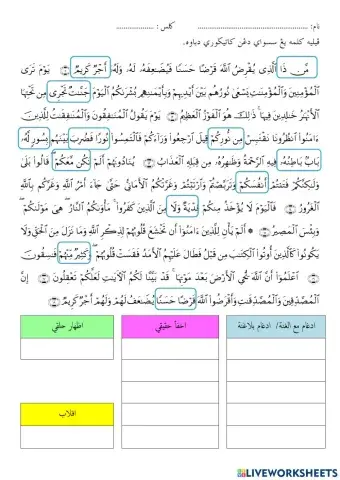 نام: ........................................ كلس : ..................
ڤيليه كلمه يڠ سسواي دڠن كاتيڬوري دباوه.
مَّن ذَا ٱلَّذِى يُقْرِضُ ٱللَّهَ قَرْضًا حَسَنًا فَيُضَـٰعِفَهُۥ لَهُۥ وَلَهُۥٓ أَجْرٌ كَرِيمٌ ١١ يَوْمَ تَرَى
ٱلْمُؤْمِنِينَ وَٱلْمُؤْمِنَـٰتِ يَسْعَىٰ نُورُهُم بَيْنَ أَيْدِيهِمْ وَبِأَيْمَـٰنِهِم بُشْرَىٰكُمُ ٱلْيَوْمَ جَنَّـٰتٌ تَجْرِى مِن تَحْتِهَا
ٱلْأَنْهَـٰرُ خَـٰلِدِينَ فِيهَا ۚ ذَٰلِكَ هُوَ ٱلْفَوْزُ ٱلْعَظِيمُ ١٢ يَوْمَ يَقُولُ ٱلْمُنَـٰفِقُونَ وَٱلْمُنَـٰفِقَـٰتُ لِلَّذِينَ
ءَامَنُوا۟ ٱنظُرُونَا نَقْتَبِسْ مِن نُّورِكُمْ قِيلَ ٱرْجِعُوا۟ وَرَآءَكُمْ فَٱلْتَمِسُوا۟ نُورًا فَضُرِبَ بَيْنَهُم بِسُورٍ لَّهُۥ
بَابٌۢ بَاطِنُهُۥ فِيهِ ٱلرَّحْمَةُ وَظَـٰهِرُهُۥ مِن قِبَلِهِ ٱلْعَذَابُ ١٣ يُنَادُونَهُمْ أَلَمْ نَكُن مَّعَكُمْ ۖ قَالُوا۟ بَلَىٰ
وَلَـٰكِنَّكُمْ فَتَنتُمْ أَنفُسَكُمْ وَتَرَبَّصْتُمْ وَٱرْتَبْتُمْ وَغَرَّتْكُمُ ٱلْأَمَانِىُّ حَتَّىٰ جَآءَ أَمْرُ ٱللَّهِ وَغَرَّكُم بِٱللَّهِ
ٱلْغَرُورُ ١٤ فَٱلْيَوْمَ لَا يُؤْخَذُ مِنكُمْ فِدْيَةٌ وَلَا مِنَ ٱلَّذِينَ كَفَرُوا۟ ۚ مَأْوَىٰكُمُ ٱلنَّارُ ۖ هِىَ مَوْلَىٰكُمْ ۖ
وَبِئْسَ ٱلْمَصِيرُ ١٥ ۞ أَلَمْ يَأْنِ لِلَّذِينَ ءَامَنُوٓا۟ أَن تَخْشَعَ قُلُوبُهُمْ لِذِكْرِ ٱللَّهِ وَمَا نَزَلَ مِنَ ٱلْحَقِّ وَلَا
يَكُونُوا۟ كَٱلَّذِينَ أُوتُوا۟ ٱلْكِتَـٰبَ مِن قَبْلُ فَطَالَ عَلَيْهِمُ ٱلْأَمَدُ فَقَسَتْ قُلُوبُهُمْ ۖ وَكَثِيرٌ مِّنْهُمْ فَـٰسِقُونَ
١٦ ٱعْلَمُوٓا۟ أَنَّ ٱللَّهَ يُحْىِ ٱلْأَرْضَ بَعْدَ مَوْتِهَا ۚ قَدْ بَيَّنَّا لَكُمُ ٱلْـَٔايَـٰتِ لَعَلَّكُمْ تَعْقِلُونَ ١٧ إِنَّ
ٱلْمُصَّدِّقِينَ وَٱلْمُصَّدِّقَـٰتِ وَأَقْرَضُوا۟ ٱللَّهَ قَرْضًا حَسَنًا يُضَـٰعَفُ لَهُمْ وَلَهُمْ أَجْرٌ كَرِيمٌ ١٨
ادغام مع الغنة/ ادغام بلاغنة
اخفأ حقيقي
اظهار حلقي
اقلاب
LIVEWORKSHEETS